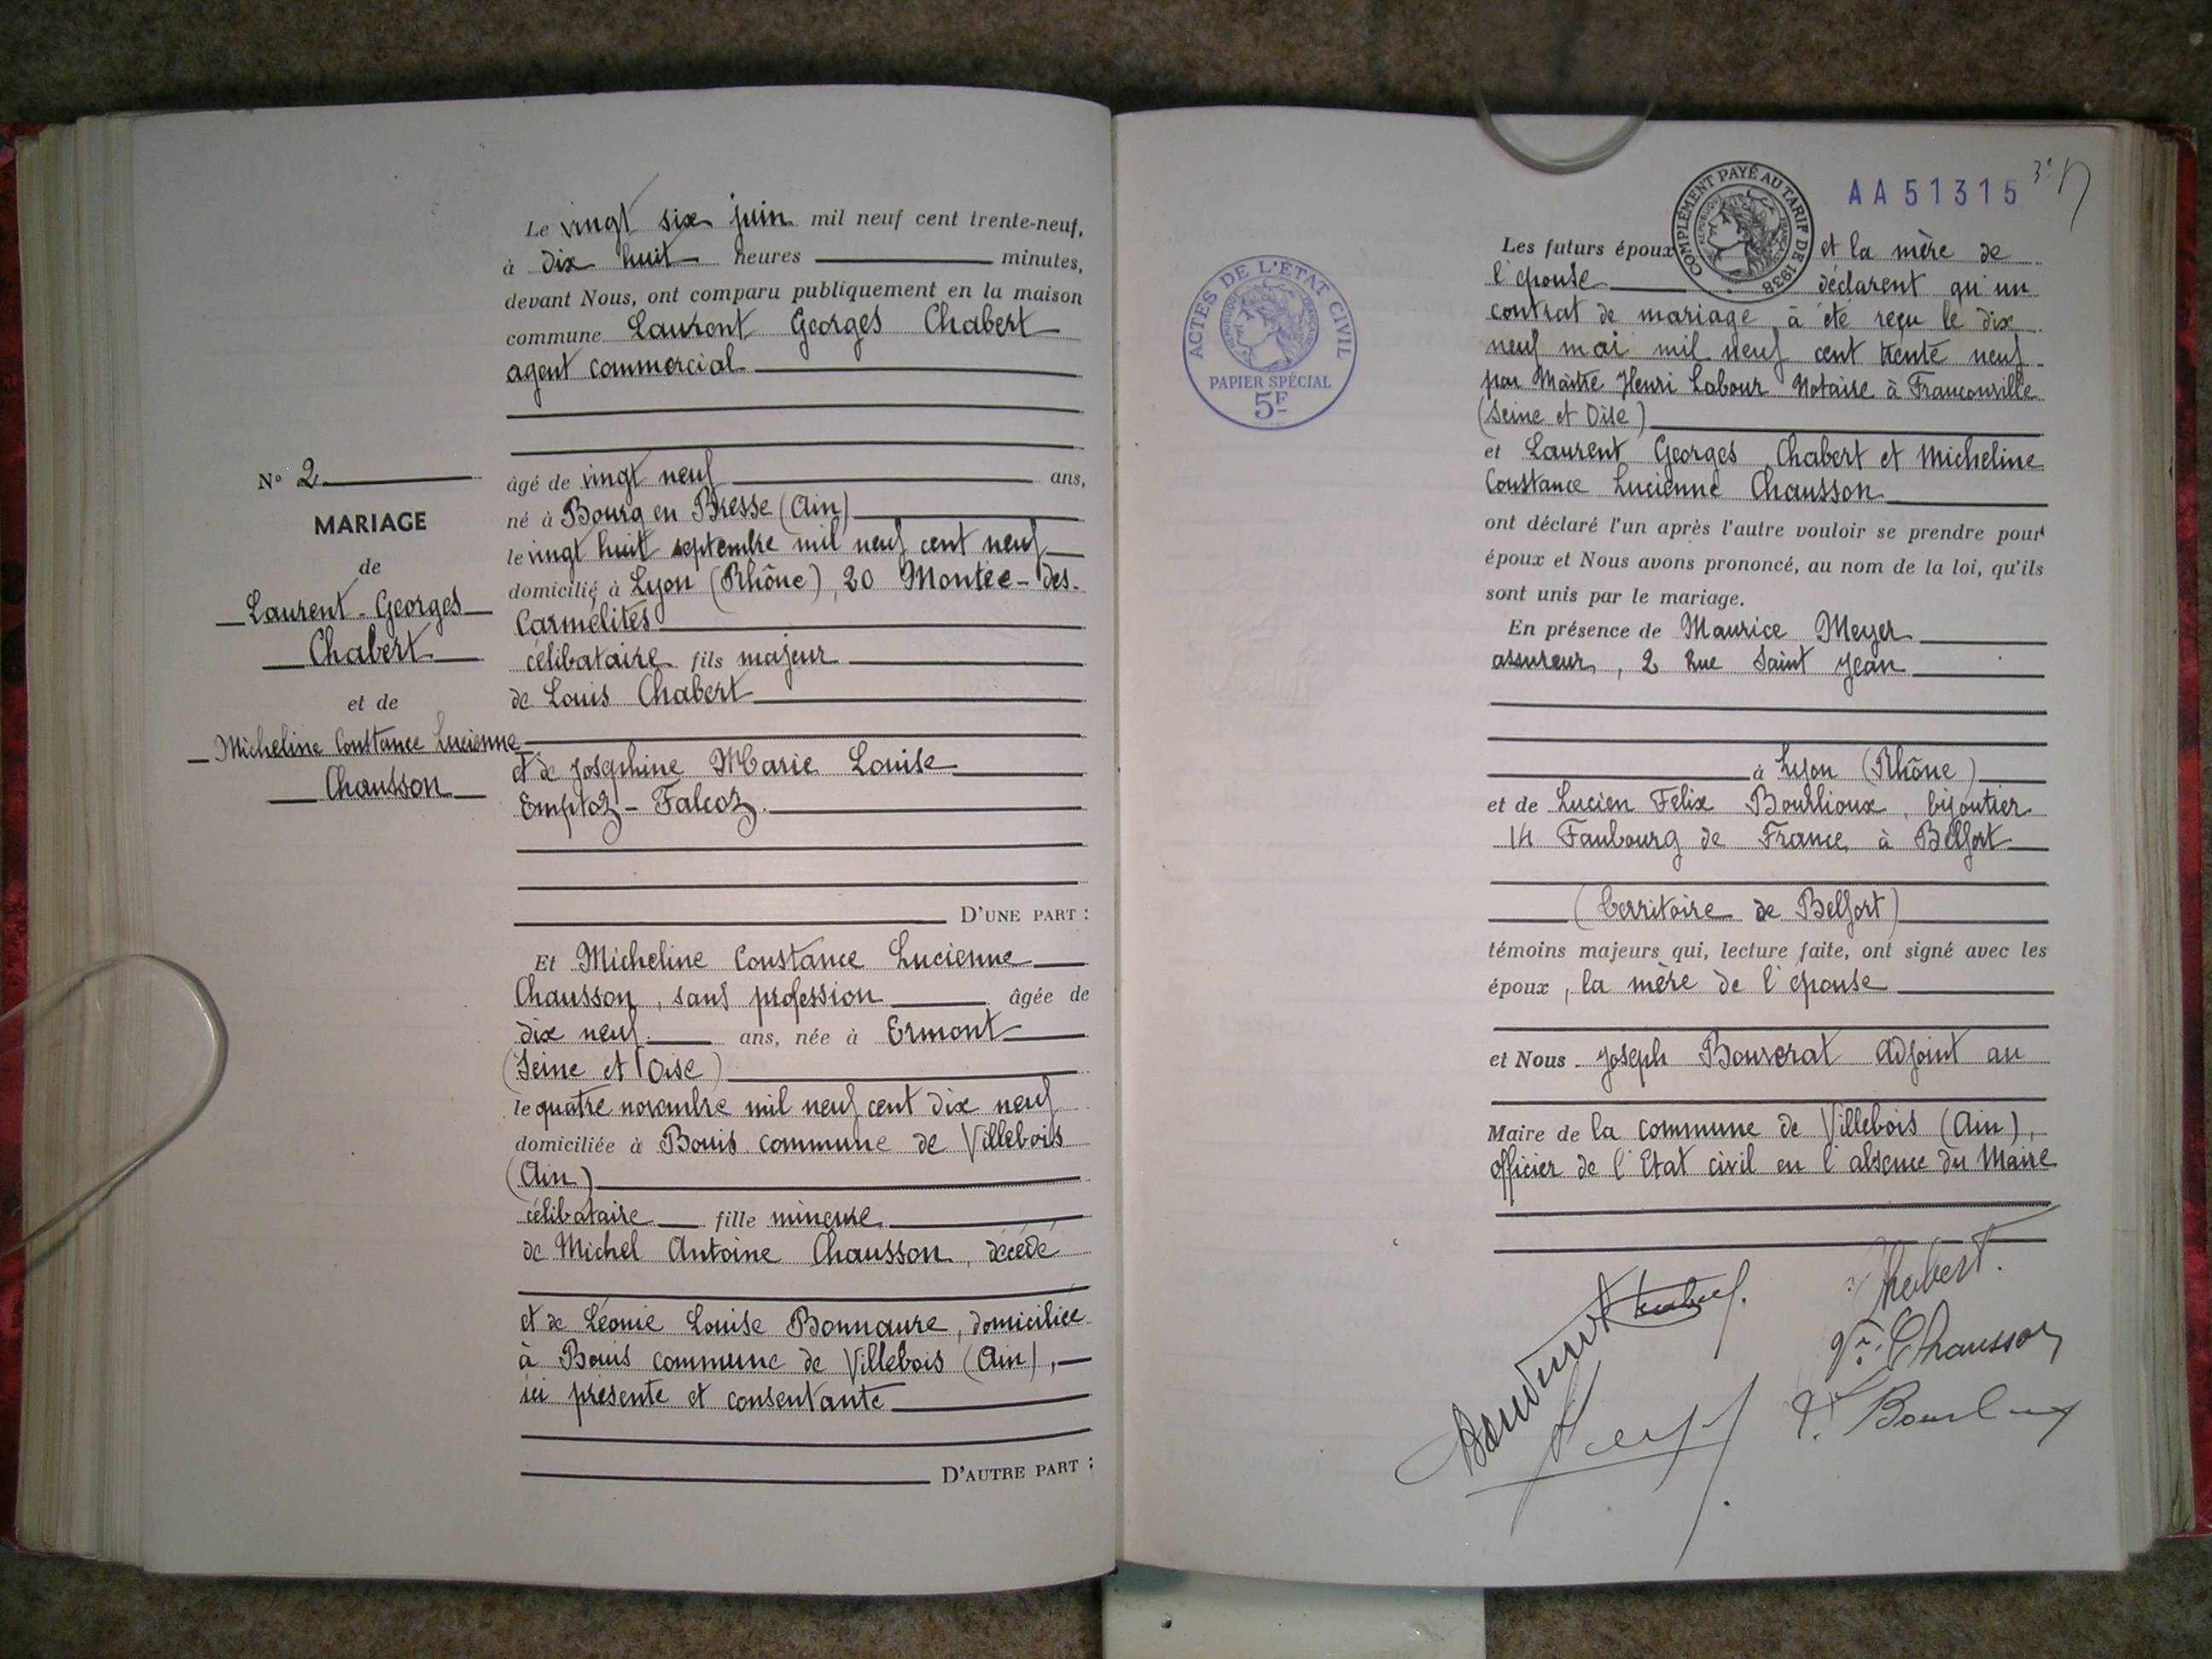 Le vingt six juin mil neuf cent trente-neuf,
à dix huit heures minutes,
devant Nous, ont comparu publiquement en la maison
commune Laurent Georges Chabert
agent commercial
âgé de vingt neuf ans,
né à Bourg en Bresse (Ain)
le vingt huit septembre mil neuf cent neuf
domicilié à Lyon (Rhône), 20 Montée-des-
Carmélites
célibataire fils majeur
de Louis Chabert
et de Joséphine Marie Louise
Emptoz-Falcoz
D'UNE PART :
Et Micheline Constance Lucienne
Chausson, sans profession âgée de
dix neuf ans, née à Ermont
(Seine et Oise)
le quatre novembre mil neuf cent dix neuf
domiciliée à Bouis commune de Villebois
(Ain)
célibataire fille mineure
de Michel Antoine Chausson, décédé
et de Léonie Louise Bonnaure, domiciliée
à Bouis commune de Villebois (Ain),
ici présente et consentante
D'AUTRE PART :
N° 2
MARIAGE
de
Laurent-Georges
Chabert
et de
Micheline Constance Lucienne
Chausson
ACTES DE L'ÉTAT CIVIL
RÉPUBLIQUE FRANÇAISE
PAPIER SPÉCIAL
5F
COMPLÉMENT PAYÉ AU TARIF DE 1938
AA51315
Les futurs époux et la mère de
l'épouse déclarent qu'un
contrat de mariage a été reçu le dix
neuf mai mil neuf cent trente neuf
par Maître Henri Labour Notaire à Franconville
(Seine et Oise)
et Laurent Georges Chabert et Micheline
Constance Lucienne Chausson
ont déclaré l'un après l'autre vouloir se prendre pour
époux et Nous avons prononcé, au nom de la loi, qu'ils
sont unis par le mariage.
En présence de Maurice Meyer
assureur, 2 Rue Saint Jean
à Lyon (Rhône)
et de Lucien Felix Bourlioux, bijoutier
14 Faubourg de France à Belfort
(Territoire de Belfort)
témoins majeurs qui, lecture faite, ont signé avec les
époux, la mère de l'épouse
et Nous Joseph Bouverat Adjoint au
Maire de la commune de Villebois (Ain),
officier de l'Etat civil en l'absence du Maire
Chabert.
Vve Chausson